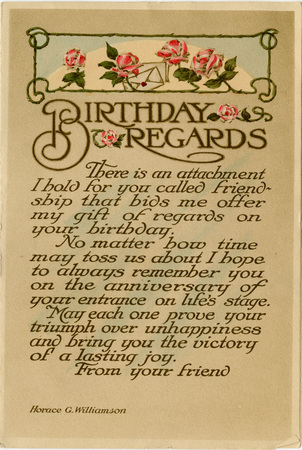 BIRTHDAY
REGARDS
There is an attachment
I hold for you called friend-
ship that bids me offer
my gift of regards on
your birthday.
No matter how time
may toss us about I hope
to always remember you
on the anniversary of
your entrance on life's stage.
May each one prove your
triumph over unhappiness
and bring you the victory
of a lasting joy.
From your friend
Horace G. Williamson